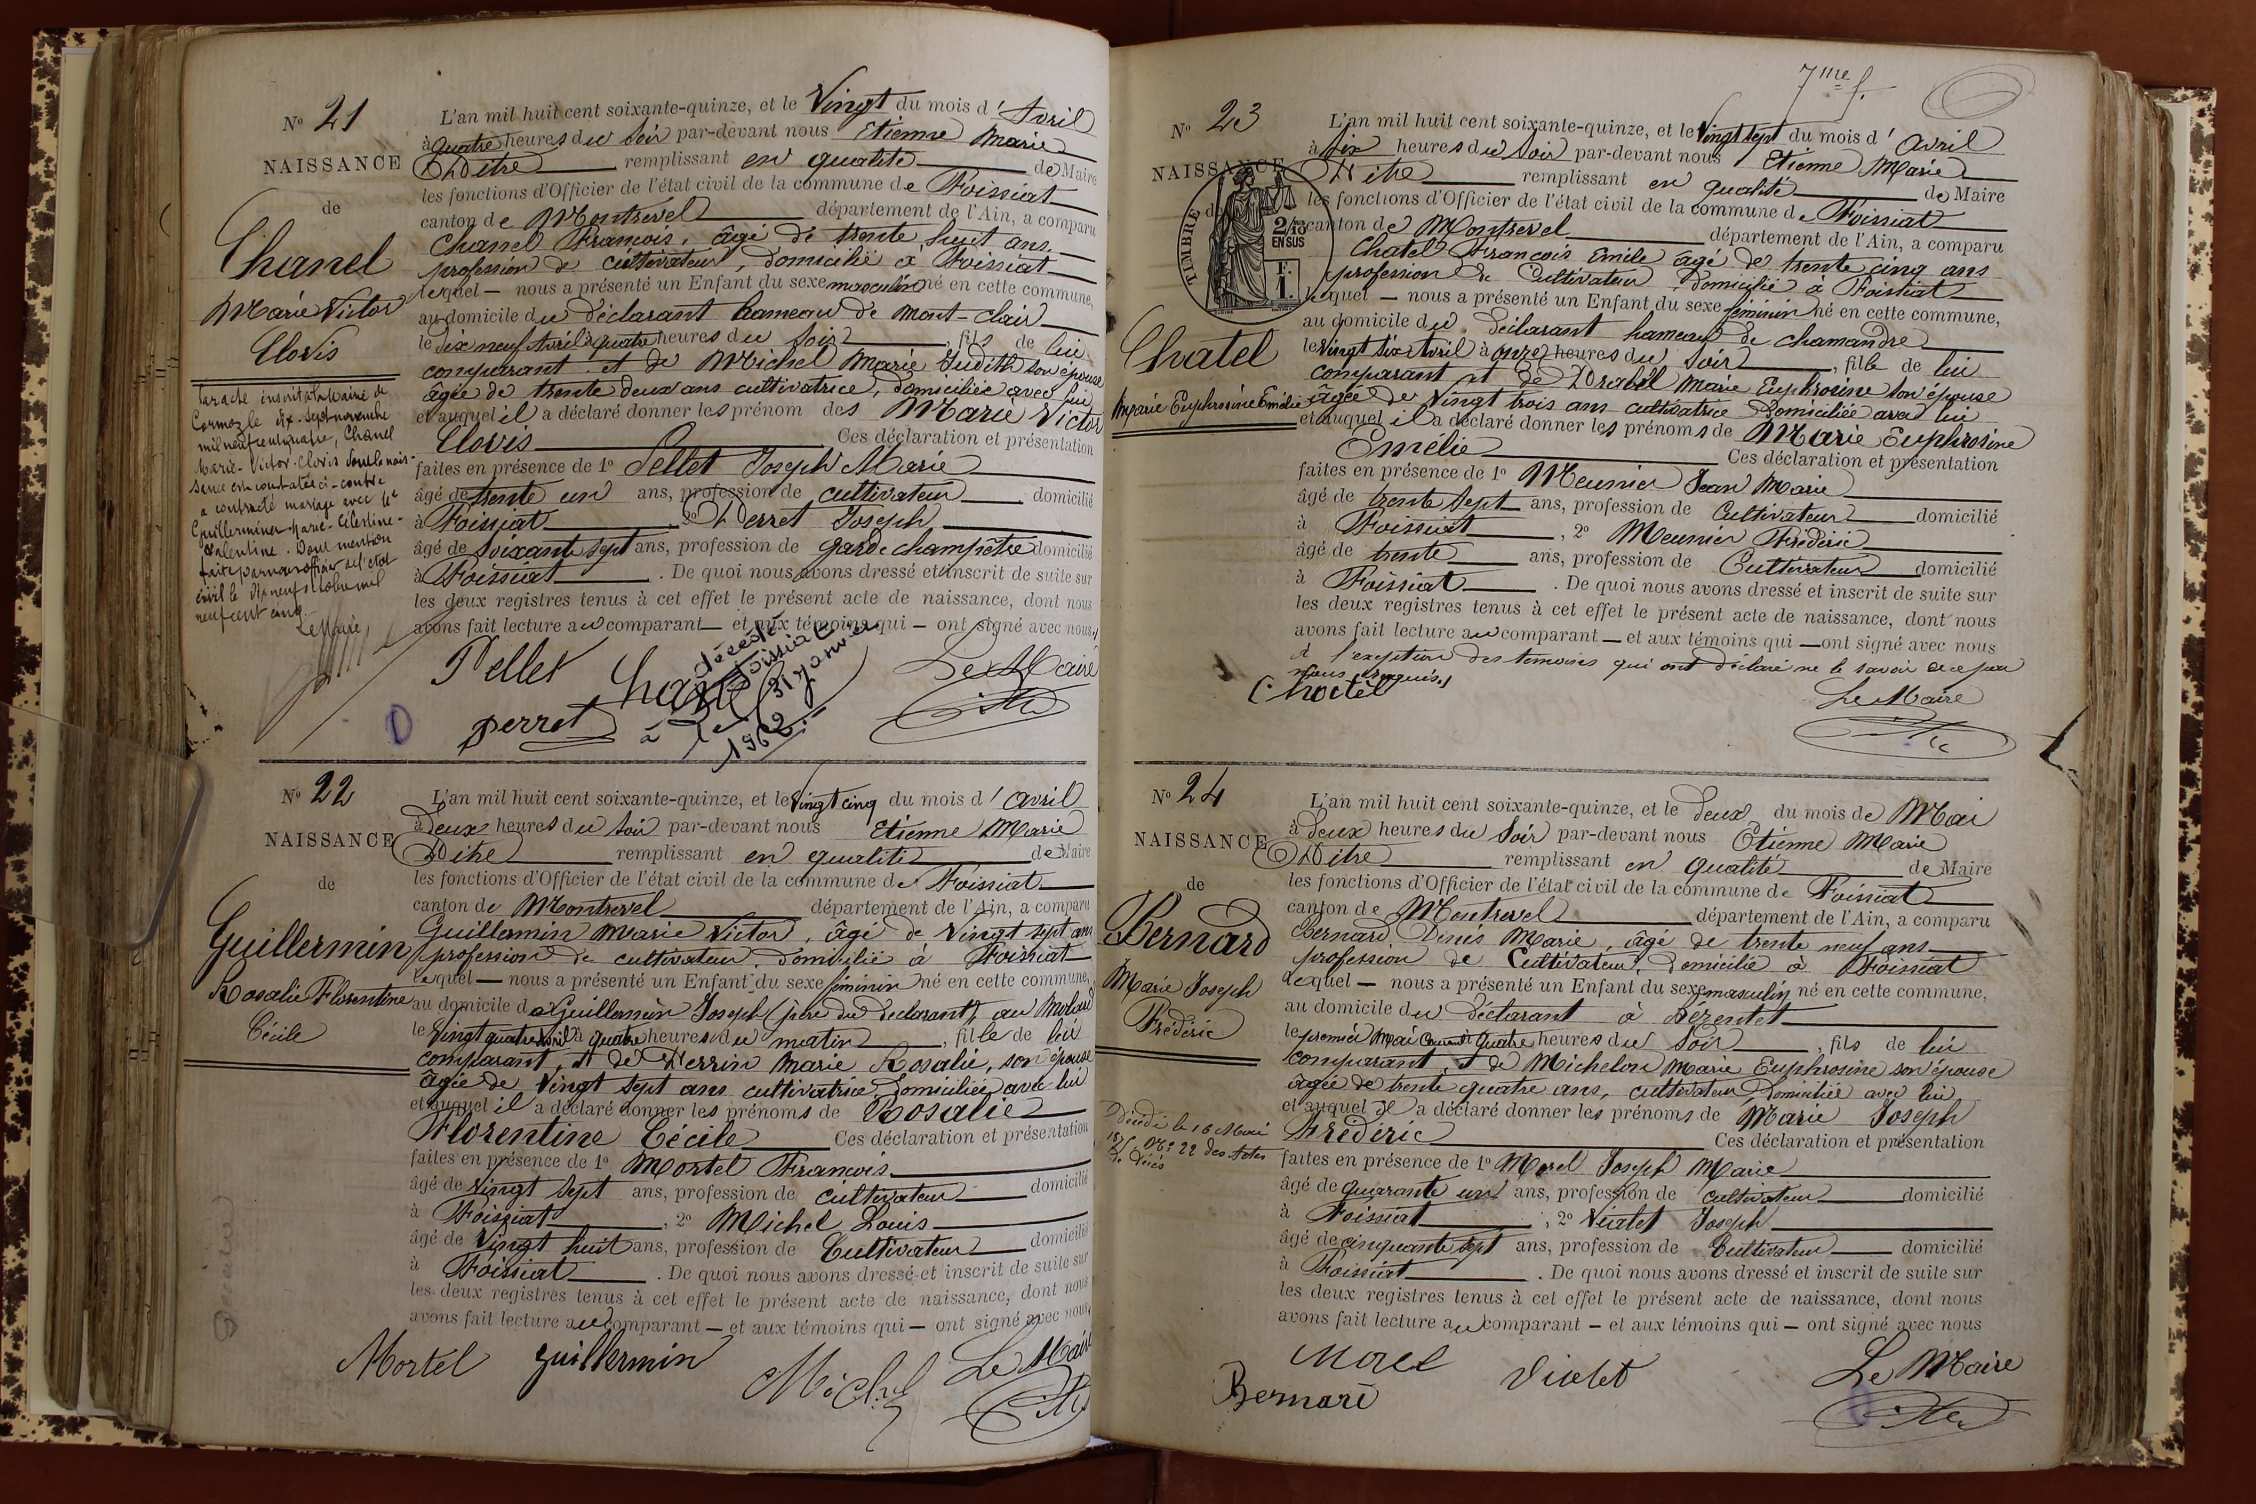 N° 21
NAISSANCE
de
Chanel
Marie Victor
Clovis
Par acte inscrit à la mairie de
Cormoz le dix-sept novembre
mil neuf cent quatre, Chanel
Marie-Victor-Clovis dont la nais-
sance est constatée ci-contre
a contracté mariage avec
Guillerminet Marie-Célestine-
Valentine. Dont mention
faite par nous officier de l'état
civil le dix neuf octobre mil
neuf cent cinq.
Le Maire,
L'an mil huit cent soixante-quinze, et le Vingt du mois d'Avril
à quatre heures du soir par-devant nous Etienne Marie
Ditre remplissant en qualité de Maire
les fonctions d'Officier de l'état civil de la commune de Foissiat
canton de Montrevel département de l'Ain, a comparu
Chanel François, âgé de trente huit ans
profession de cultivateur, domicilié à Foissiat
lequel — nous a présenté un Enfant du sexe masculin né en cette commune,
au domicile du déclarant hameau de Mont-clair
le dix neuf Avril à quatre heures du soir, fils de lui
comparant et de Michel Marie Judith son épouse
âgée de trente deux ans cultivatrice, domiciliée avec lui
et auquel il a déclaré donner les prénom des Marie Victor
Clovis Ces déclaration et présentation
faites en présence de 1° Pellet Joseph Marie
âgé de trente un ans, profession de cultivateur domicilié
à Foissiat 2° Perret Joseph
âgé de soixante sept ans, profession de garde champêtre domicilié
à Foissiat . De quoi nous avons dressé et inscrit de suite sur
les deux registres tenus à cet effet le présent acte de naissance, dont nous
avons fait lecture au comparant — et aux témoins qui — ont signé avec nous
Pellet Chanel Le Maire
perret
décédé
à Foissiat
le 31 janvier
1962
N° 22
NAISSANCE
de
Guillermin
Rosalie Florentine
Cécile
L'an mil huit cent soixante-quinze, et le Vingt cinq du mois d'avril
à Deux heures du soir par-devant nous Etienne Marie
Ditre remplissant en qualité de Maire
les fonctions d'Officier de l'état civil de la commune de Foissiat
canton de Montrevel département de l'Ain, a comparu
Guillermin Marie Victor, âgé de Vingt sept ans
profession de cultivateur domicilié à Foissiat
lequel — nous a présenté un Enfant du sexe féminin né en cette commune,
au domicile de Guillermin Joseph (père du déclarant) au
le Vingt quatre avril à quatre heures du matin, fille de lui
comparant, et de Perrin Marie Rosalie, son épouse
âgée de Vingt sept ans cultivatrice domiciliée avec lui
et auquel il a déclaré donner les prénoms de Rosalie
Florentine Cécile Ces déclaration et présentation
faites en présence de 1° Mortel François
âgé de Vingt sept ans, profession de cultivateur domicilié
à Foissiat, 2° Michel Louis
âgé de Vingt huit ans, profession de Cultivateur domicilié
à Foissiat . De quoi nous avons dressé et inscrit de suite sur
les deux registres tenus à cet effet le présent acte de naissance, dont nous
avons fait lecture au comparant — et aux témoins qui — ont signé avec nous
Mortel guillermin Michel Le Maire
7me f.
N° 23
NAISSANCE
de
TIMBRE
2/10
EN SUS
F.
1.
Chatel
Marie Euphrosine Emélie
L'an mil huit cent soixante-quinze, et le Vingt sept du mois d'avril
à six heures du soir par-devant nous Etienne Marie
Ditre remplissant en qualité de Maire
les fonctions d'Officier de l'état civil de la commune de Foissiat
canton de Montrevel département de l'Ain, a comparu
Chatel François Emile âgé de trente cinq ans
profession de Cultivateur, domicilié à Foissiat
lequel — nous a présenté un Enfant du sexe féminin né en cette commune,
au domicile du déclarant hameau de chamandre
le vingt six Avril à onze heures du soir, fille de lui
comparant et de Marie Euphrosine son épouse
âgée de Vingt trois ans cultivatrice domiciliée avec lui
et auquel il a déclaré donner les prénoms de Marie Euphrosine
Emélie Ces déclaration et présentation
faites en présence de 1° Meunier Jean Marie
âgé de trente sept ans, profession de Cultivateur domicilié
à Foissiat, 2° Meunier Frédéric
âgé de trente ans, profession de Cultivateur domicilié
à Foissiat . De quoi nous avons dressé et inscrit de suite sur
les deux registres tenus à cet effet le présent acte de naissance, dont nous
avons fait lecture au comparant — et aux témoins qui — ont signé avec nous
à l'exception des témoins qui ont déclaré ne le savoir de ce par
nous requis
Chatel Le Maire
N° 24
NAISSANCE
de
Bernard
Marie Joseph
Frédéric
Décédé le 16 Mai
N° 22 des actes
de décès
L'an mil huit cent soixante-quinze, et le Deux du mois de Mai
à Deux heures du Soir par-devant nous Etienne Marie
Ditre remplissant en qualité de Maire
les fonctions d'Officier de l'état civil de la commune de Foissiat
canton de Montrevel département de l'Ain, a comparu
Bernard Denis Marie, âgé de trente neuf ans
profession de Cultivateur, domicilié à Foissiat
lequel — nous a présenté un Enfant du sexe masculin né en cette commune,
au domicile du déclarant à Dézentet
le premier Mai Courant à quatre heures du Soir, fils de lui
comparant, et de Michelon Marie Euphrosine son épouse
âgée de trente quatre ans, cultivateur, domiciliée avec lui
et auquel il a déclaré donner les prénoms de Marie Joseph
Frédéric Ces déclaration et présentation
faites en présence de 1° Morel Joseph Marie
âgé de quarante un ans, profession de cultivateur domicilié
à Foissiat, 2° Violet Joseph
âgé de cinquante sept ans, profession de Cultivateur domicilié
à Foissiat . De quoi nous avons dressé et inscrit de suite sur
les deux registres tenus à cet effet le présent acte de naissance, dont nous
avons fait lecture au comparant — et aux témoins qui — ont signé avec nous
Morel Violet Le Maire
Bernard